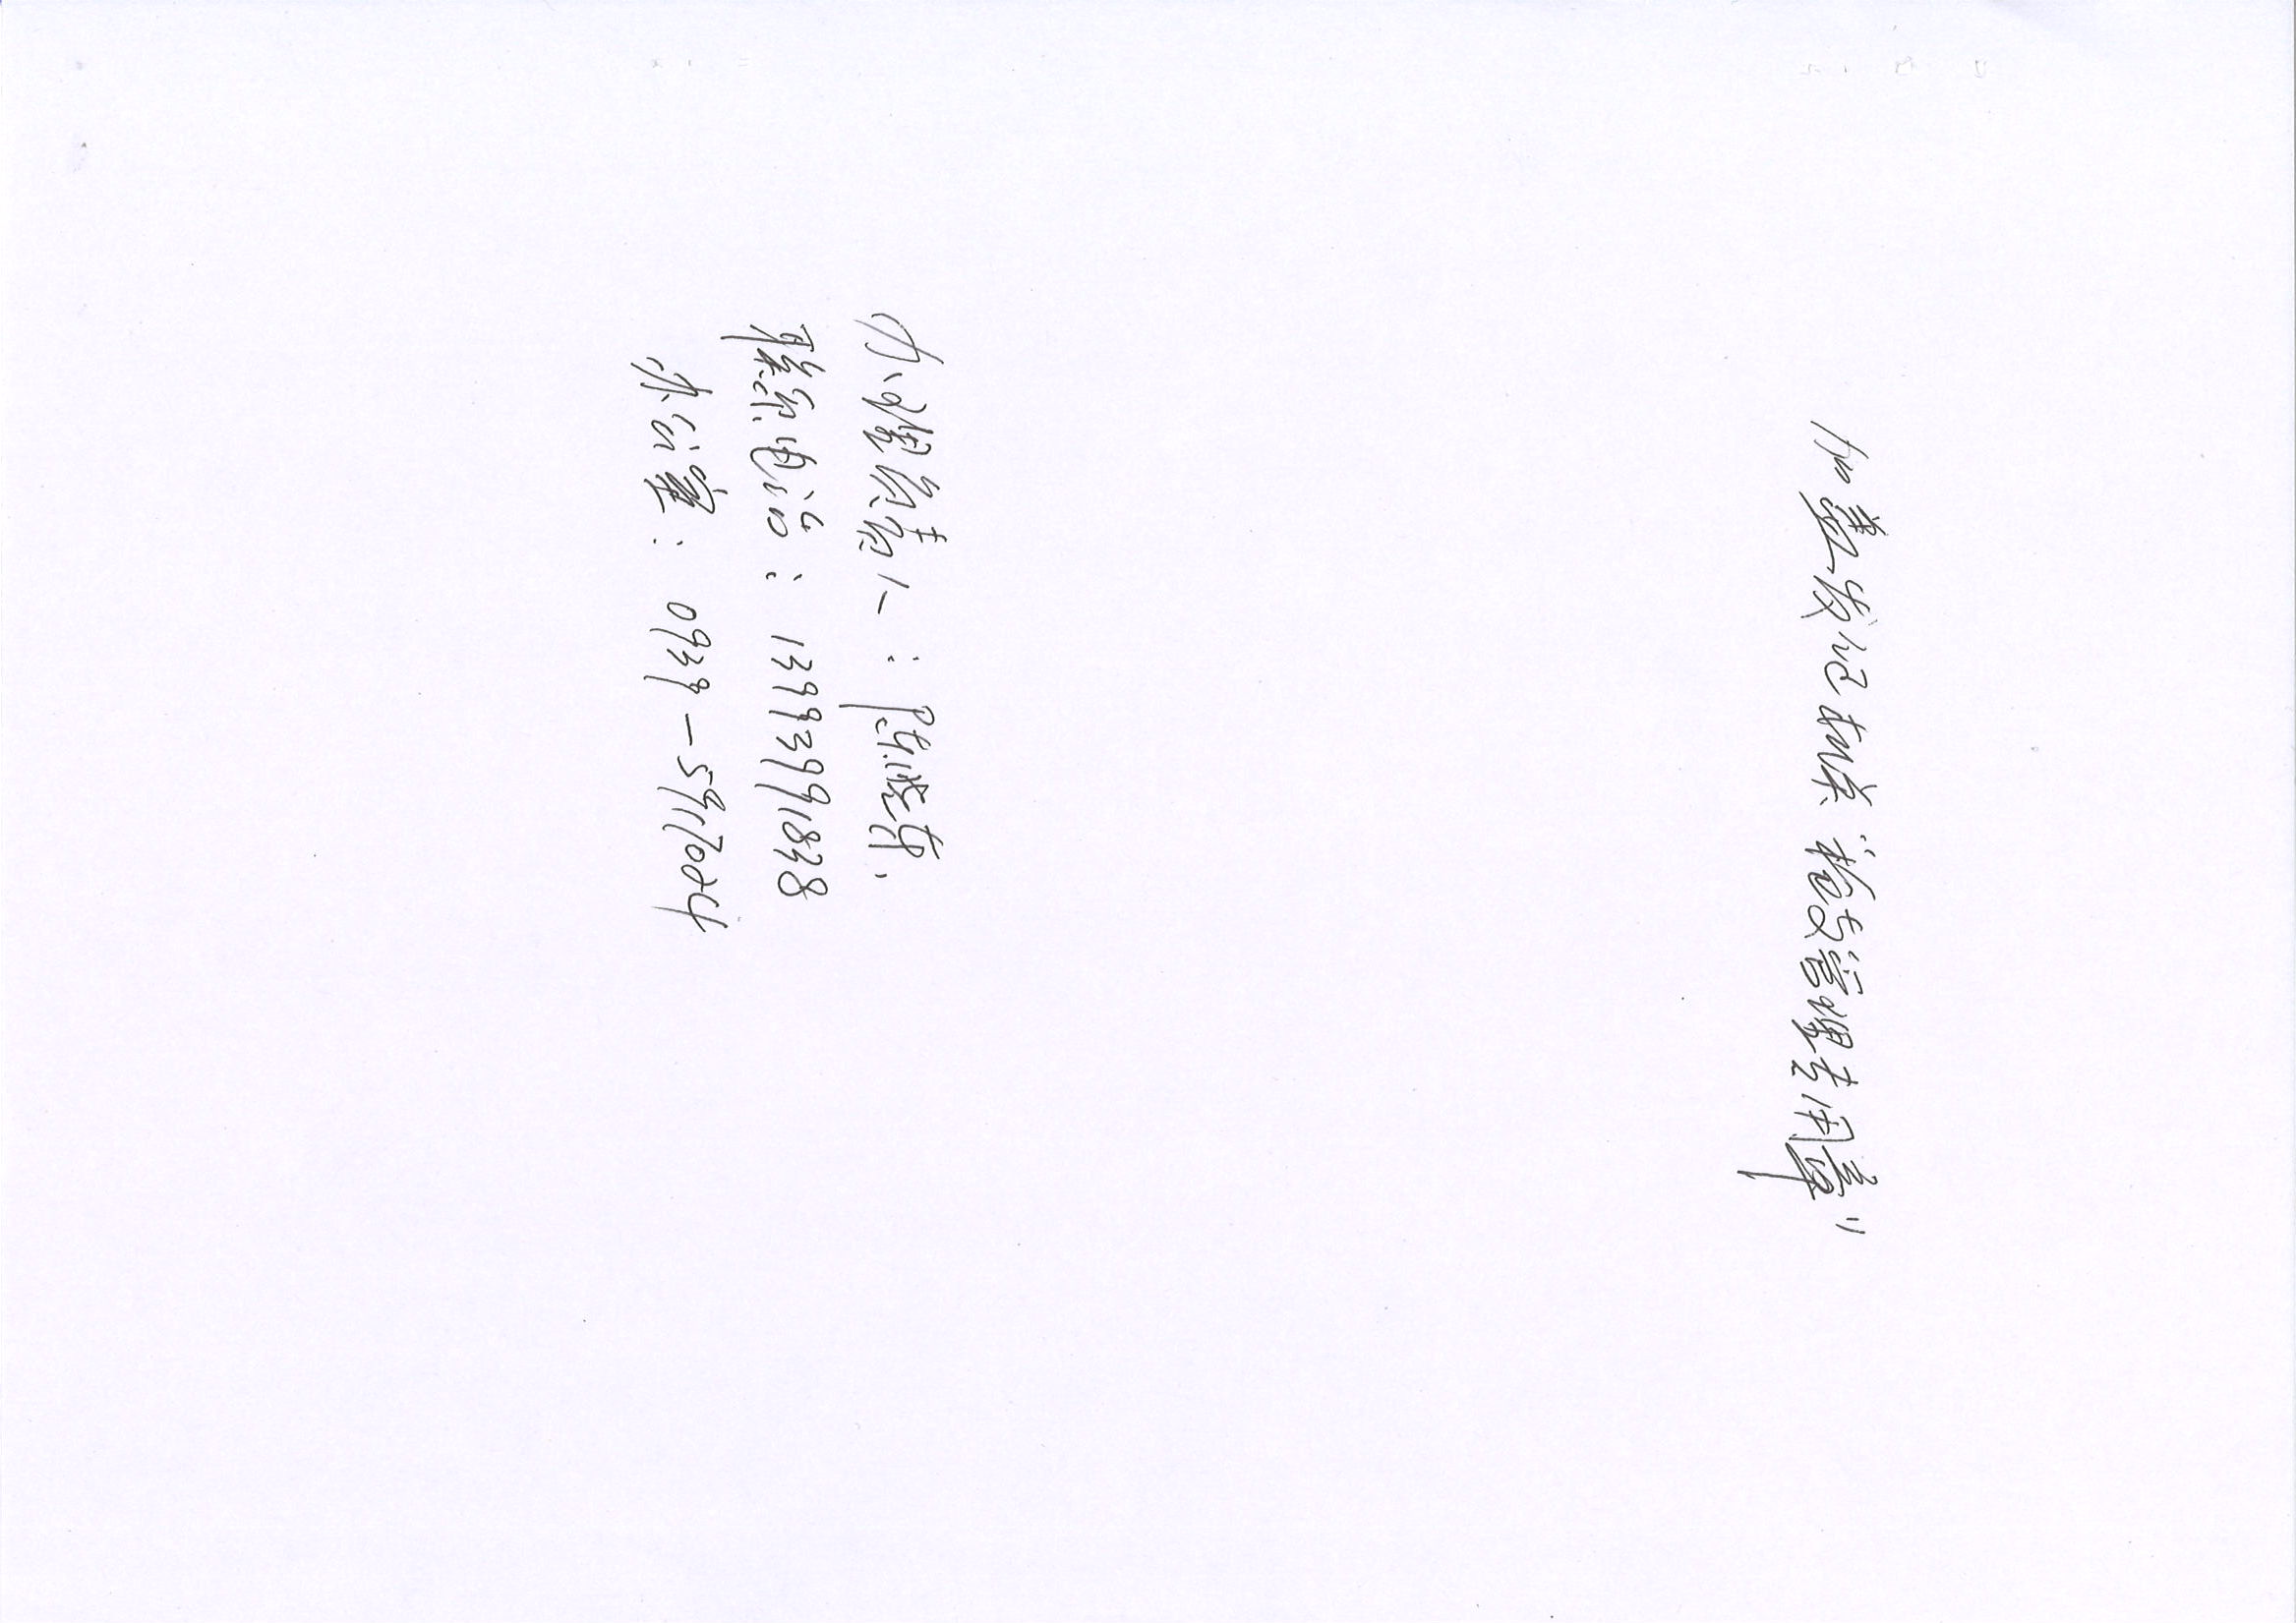 加盖发证机关“枪支管理专用章”
办理负责人：陈晓东.
联系电话：13993991838
办公室：0939-5917024